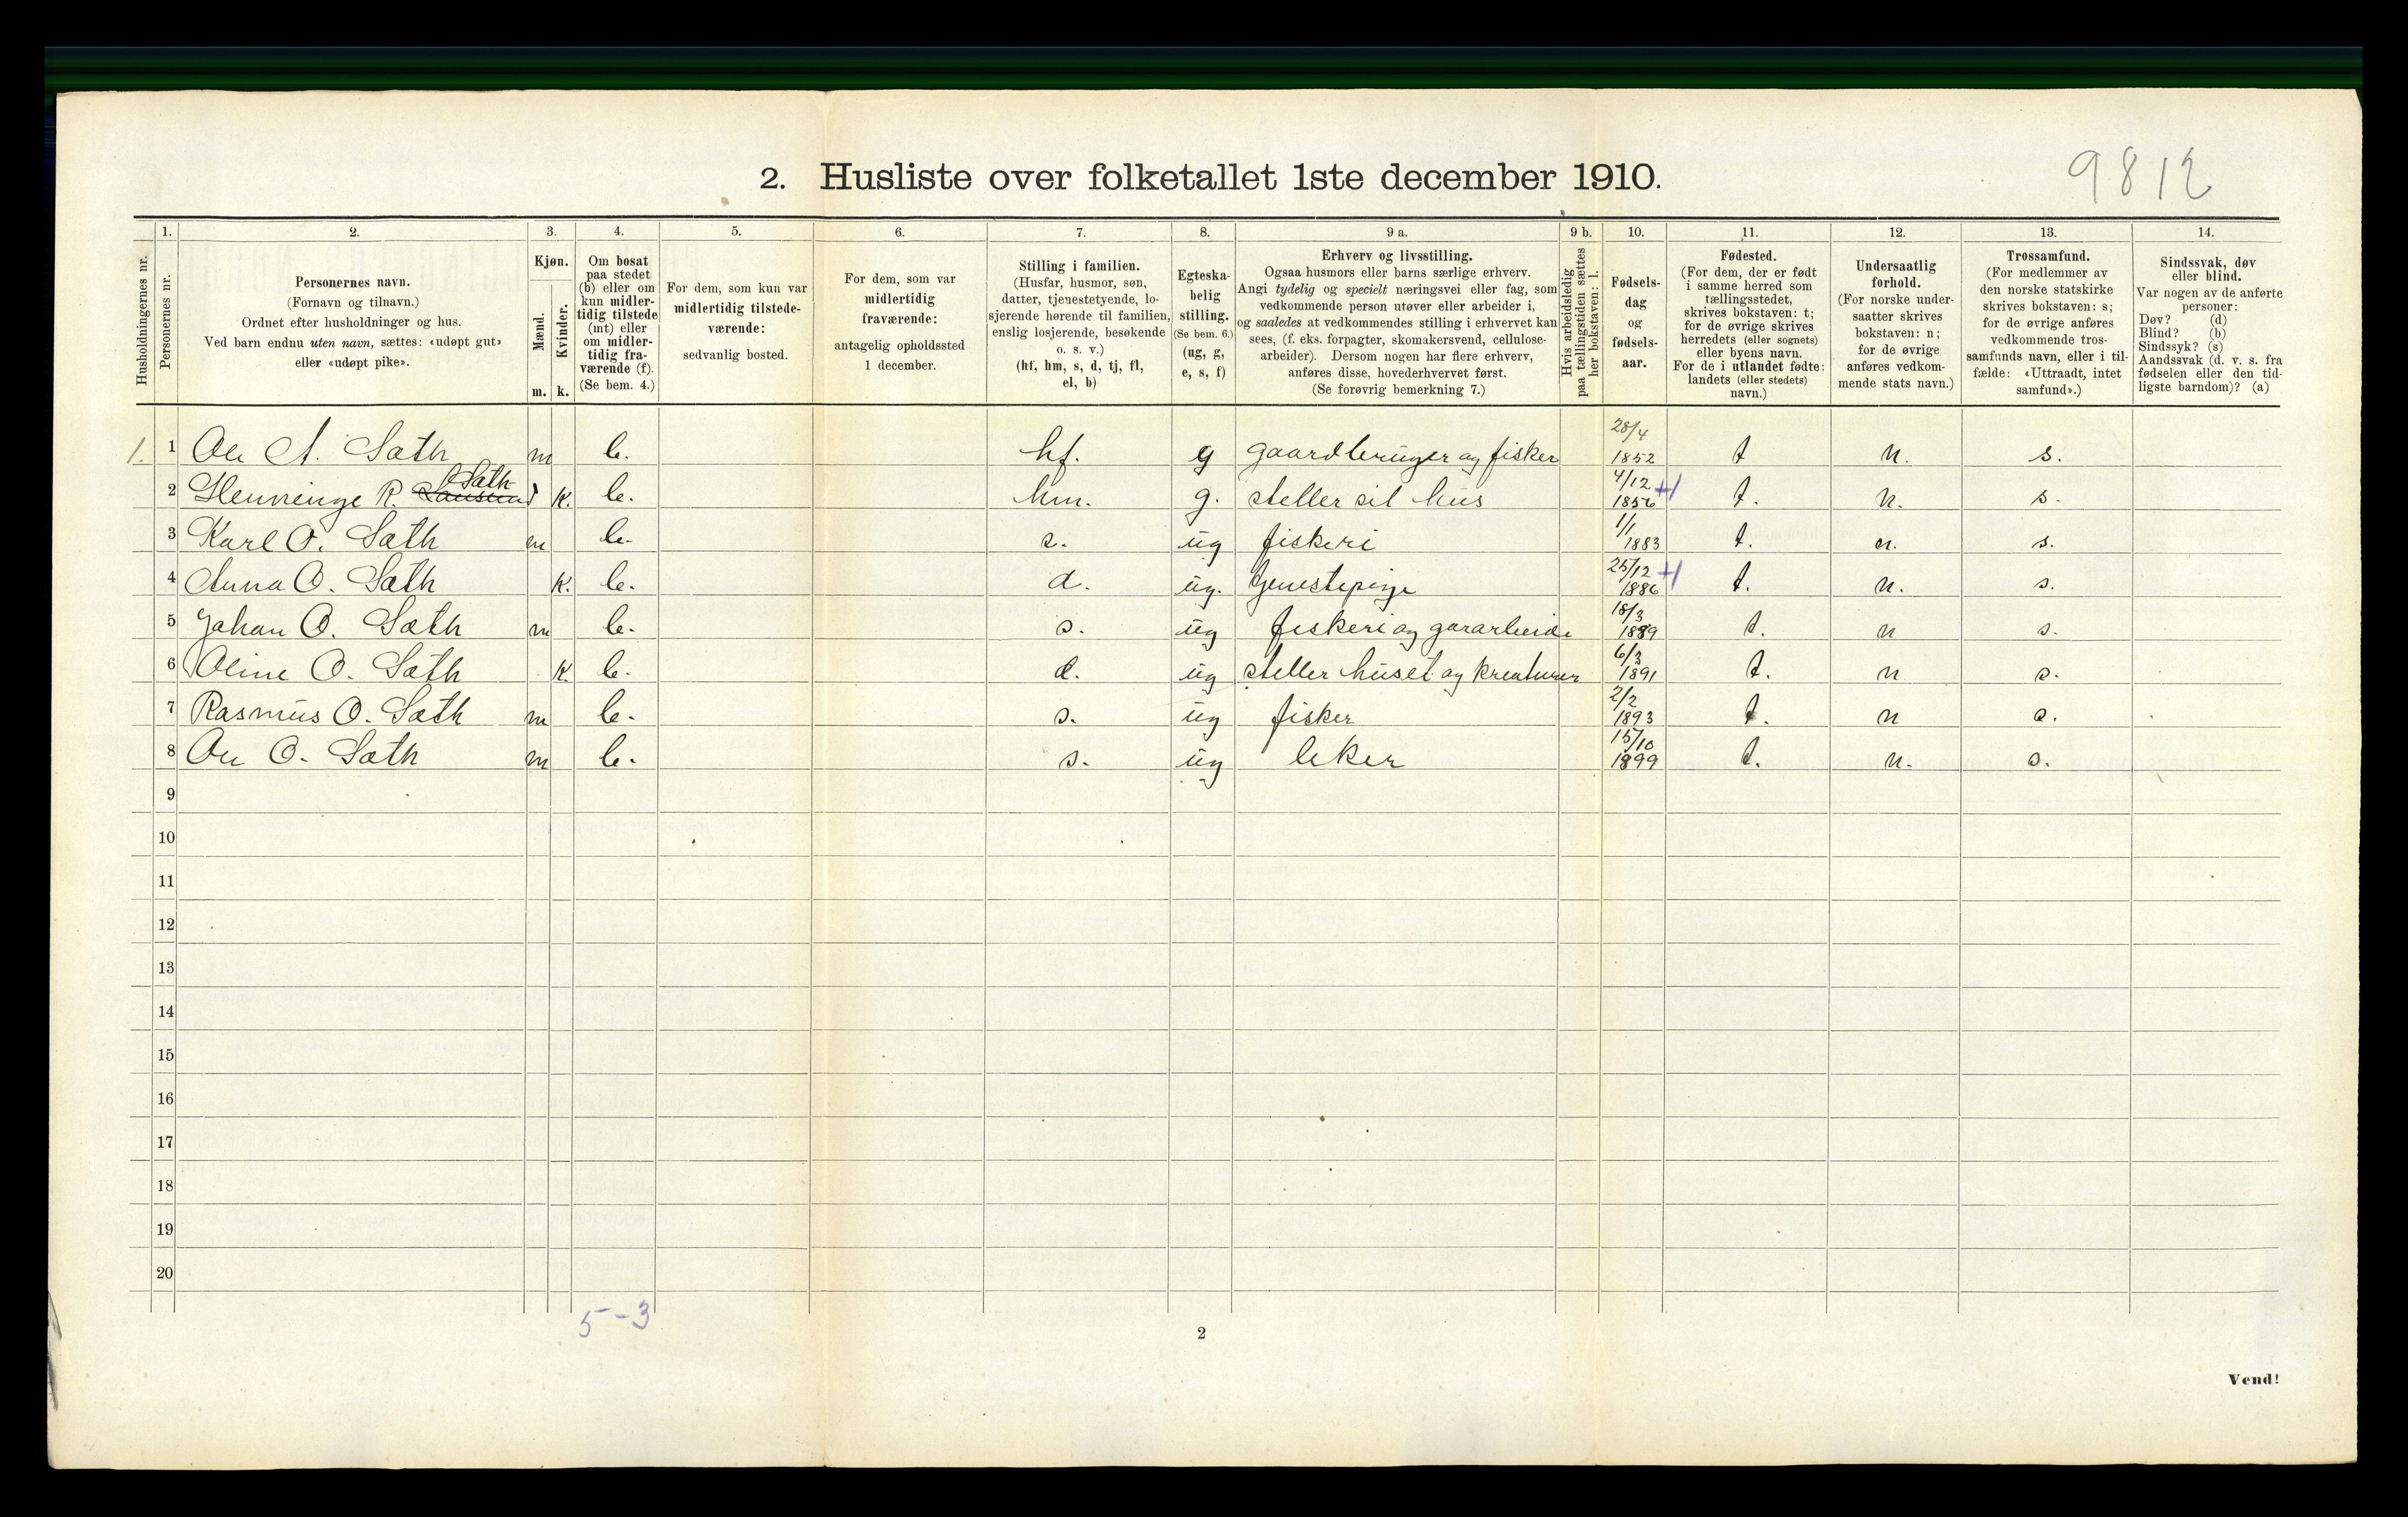 9812
2. Husliste over folketallet 1ste december 1910.
Husholdningernes nr.
1.
Personernes nr.
2.
Personernes navn.
(Fornavn og tilnavn.)
Ordnet efter husholdninger og hus.
Ved barn endnu uten navn, sættes: «udøpt gut»
eller «udøpt pike».
3.
Kjøn.
Mænd.
Kvinder.
m. k.
4.
Om bosat
paa stedet
(b) eller om
kun midler-
tidig tilstede
(mt) eller
om midler-
tidig fra-
værende (f).
(Se bem. 4.)
5.
For dem, som kun var
midlertidig tilstede-
værende:
sedvanlig bosted.
6.
For dem, som var
midlertidig
fraværende:
antagelig opholdssted
1 december.
7.
Stilling i familien.
(Husfar, husmor, søn,
datter, tjenestetyende, lo-
sjerende hørende til familien,
enslig losjerende, besøkende
o. s. v.)
(hf, hm, s, d, tj, fl,
el, b)
8.
Egteska-
belig
stilling.
(Se bem. 6.)
(ug, g,
e, s, f)
9 a.
Erhverv og livsstilling.
Ogsaa husmors eller barns særlige erhverv.
Angi tydelig og specielt næringsvei eller fag, som
vedkommende person utøver eller arbeider i,
og saaledes at vedkommendes stilling i erhvervet kan
sees, (f. eks. forpagter, skomakersvend, cellulose-
arbeider). Dersom nogen har flere erhverv,
anføres disse, hovederhvervet først.
(Se forøvrig bemerkning 7.)
9 b.
Hvis arbeidsledig
paa tællingstiden sættes
her bokstaven: l.
10.
Fødsels-
dag
og
fødsels-
aar.
11.
Fødested.
(For dem, der er født
i samme herred som
tællingsstedet,
skrives bokstaven: t;
for de øvrige skrives
herredets (eller sognets)
eller byens navn.
For de i utlandet fødte:
landets (eller stedets)
navn.)
12.
Undersaatlig
forhold.
(For norske under-
saatter skrives
bokstaven: n;
for de øvrige
anføres vedkom-
mende stats navn.)
13.
Trossamfund.
(For medlemmer av
den norske statskirke
skrives bokstaven: s;
for de øvrige anføres
vedkommende tros-
samfunds navn, eller i til-
fælde: «Uttraadt, intet
samfund».)
14.
Sindssvak, døv
eller blind.
Var nogen av de anførte
personer:
Døv? (d)
Blind? (b)
Sindssyk? (s)
Aandssvak (d. v. s. fra
fødselen eller den tid-
ligste barndom)? (a)
1. 1 Ole A. Sæth m b. hf. g gaardbruger og fisker 28/4 1852 t n. s.
2 Henninge R. Sæth k. b. hm. g. steller sit hus 4/12 1856 t. n. s.
3 Karl O. Sæth m b. s. ug fiskeri 1/1 1883 t. n. s.
4 Anna O. Sæth k. b. d. ug. tjenestepige 25/12 1886 t. n. s.
5 Johan O. Sæth m b. s. ug fiskeri og 18/3 1889 t. n s.
6 Oline O. Sæth k. b. d. ug steller huset og kreaturer 6/3 1891 t. n s.
7 Rasmus O. Sæth m b. s. ug fisker 2/2 1893 t. n s.
8 Ole O. Sæth m b. s. ug leker 15/10 1899 t. n. s.
9
10
11
12
13
14
15
16
17
18
19
20
5-3
2
Vend!